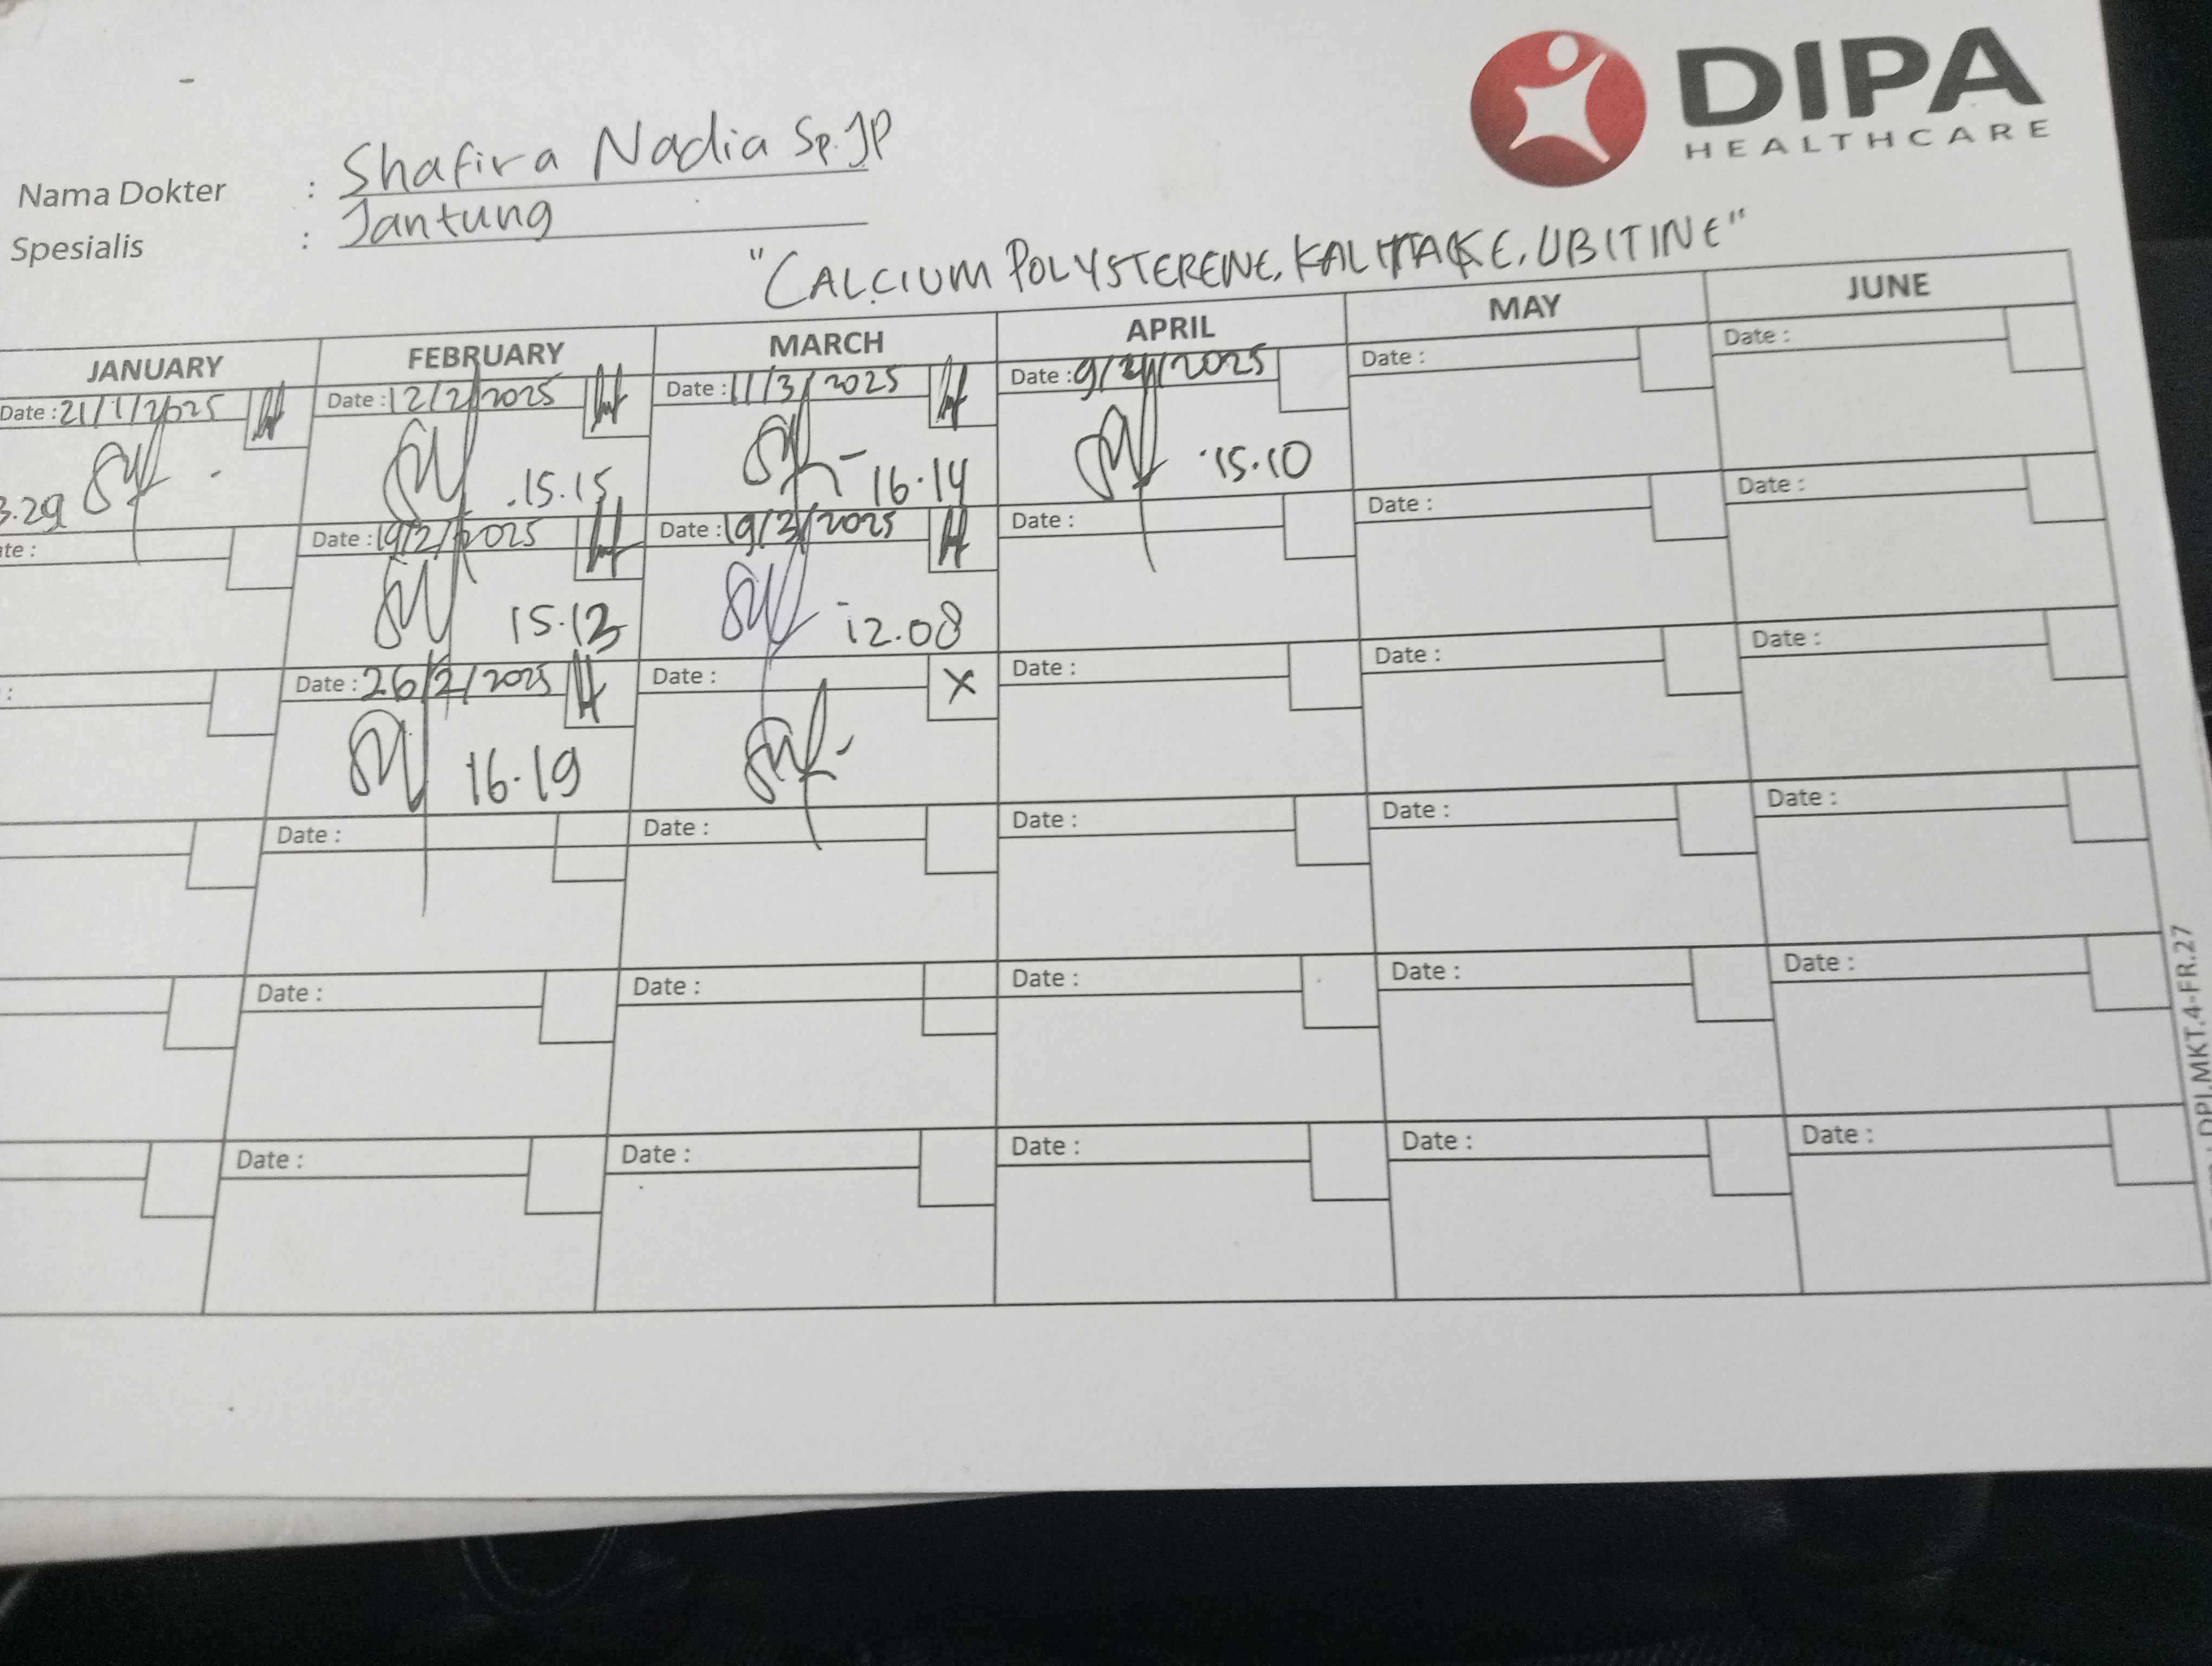 DIPA
HEALTHCARE
Nama Dokter : Shafira Nadia Sp.JP
Spesialis : Jantung
"CALCIUM POLYSTERENE, KALITAKE, UBITINE"
JANUARY FEBRUARY MARCH APRIL MAY JUNE
Date : 21/1/2025 Date : 12/2/2025 Date : 11/3/2025 Date : 9/4/2025 Date : Date :
3.29 .15.15 16.14 .15.10
te : Date : 19/2/2025 Date : 19/3/2025 Date : Date : Date :
15.13 12.08
: Date : 26/2/2025 Date : X Date : Date : Date :
16.19
Date : Date : Date : Date : Date :
Date : Date : Date : Date : Date :
Date : Date : Date : Date : Date :
DPJ.MKT.4-FR.27